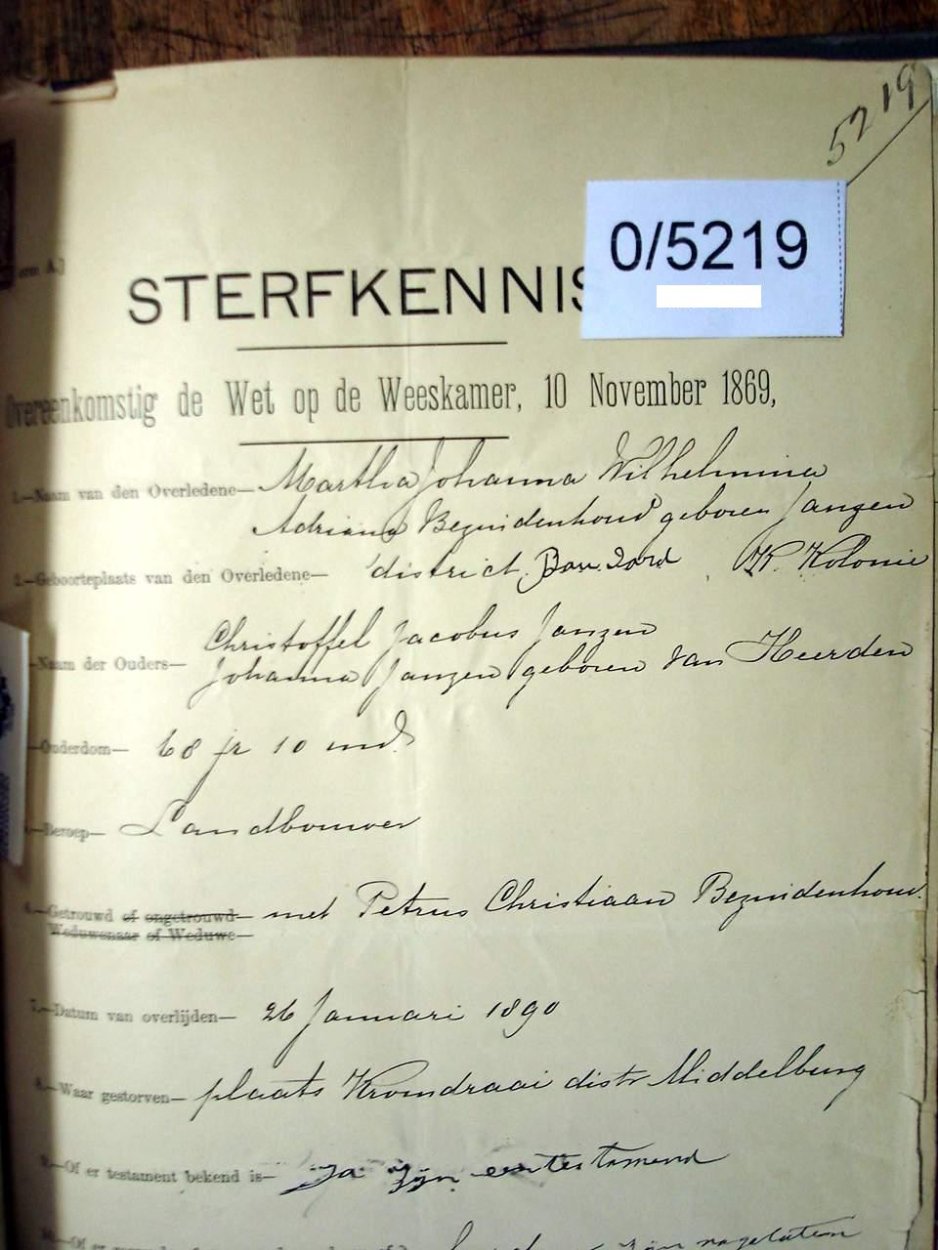 5219
0/5219
orm A.]
STERFKENNIS
Overeenkomstig de Wet op de Weeskamer, 10 November 1869,
1.—Naam van den Overledene— Martha Johanna Wilhelmina
Adriana Bezuidenhoud geboren Janzen
2.—Geboorteplaats van den Overledene— district K. Kolonie
—Naam der Ouders— Christoffel Jacobus Janzen
Johanna Janzen geboren van Heerden
—Ouderdom— 68 jr 10 md
—Beroep— Landbouwer
6.—Getrouwd of ongetrouwd— met Petrus Christiaan Bezuidenhoud
Weduwenaar of Weduwe—
7.—Datum van overlijden— 26 Januari 1890
8.—Waar gestorven— plaats Kromdraai distr Middelburg
9.—Of er testament bekend is— Ja zijn een testamend
10.—Of er zijn nagelaten